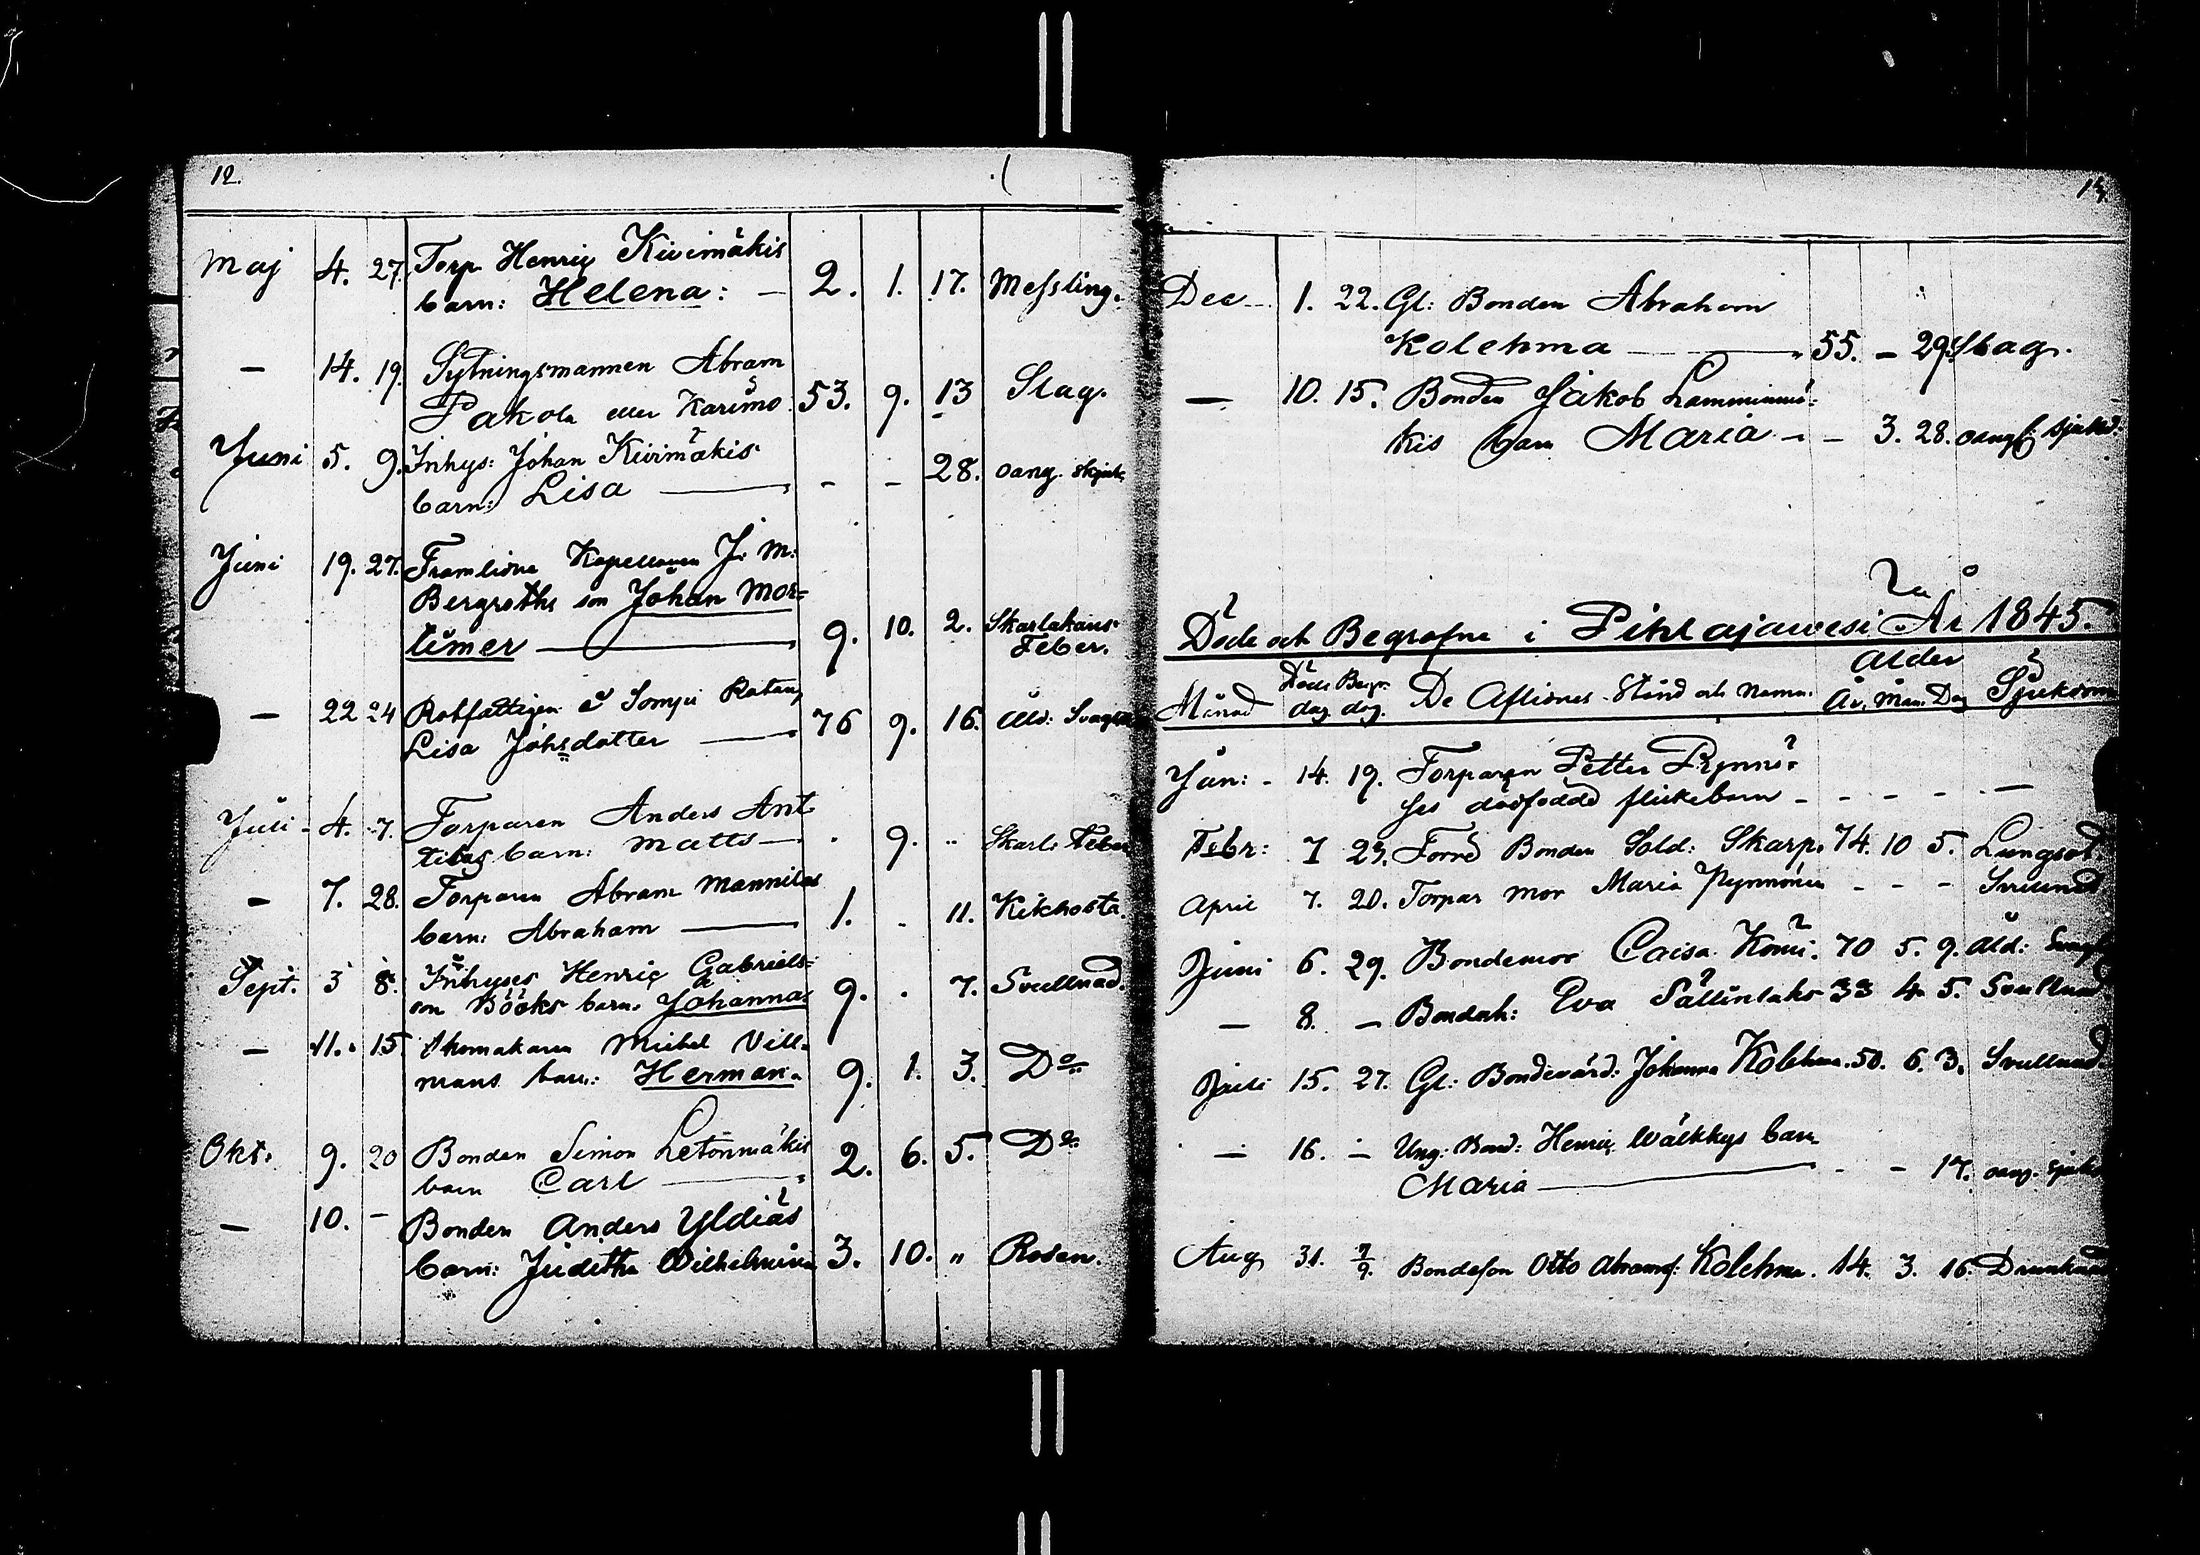 12.
Maj 4. 27. Torp Henric Kivimäkis
barn: Helena: — 2. 1. 17. Messling.
— 14. 19. Sytningsmannen Abram
Pakola eller Karimo 53. 9. 13 Slag.
Juni 5. 9. Inhys: Johan Kivimäkis
barn: Lisa — - - 28. oang. skjuk.
Juni 19. 27. Framlidne Kapellanen J. M.
Bergroths son Johan Mor=
timer — 9. 10. 2. Skarlakans
Feber.
— 22 24 Rotfattigen å Sompi Rotan
Lisa Johsdotter — 76 9. 16. Åld: Svagh
Juli - 4. 7. Torparen Anders Ant
tilas barn: Matts — . 9. .. Skarl: Feber
— 7. 28. Torparen Abram Mannilas
barn: Abraham — 1. . 11. Kikhosta.
Sept. 3 8. Inhyses Henric Gabriels=
son Bööks barn. Johannas 9. . 7. Svullnad.
— 11. 15. Skomakaren Michel Vill=
mans barn: Herman. 9. 1. 3. Do
Okt. 9. 20 Bonden Simon Letonmäkis
barn Carl — 2. 6. 5. Do
— 10. - Bonden Anders Yldiäs
barn: Juditha Wilhelmina 3. 10. " Rosen.
13.
Dec - 1. 22. Gl: Bonden Abraham
Kolehma — 55. - 29. Slag.
— 10. 15. Bonden Jakob Lamminmä-
kis barn Maria - - 3. 28. oangf. sjukd.
Döde och Begrafne i Pihlajawesi År 1845.
Ålder
Månad Död: Begr. De Aflidnes Stånd och Namn. År. Mån. Dag Sjukdom
dag dag.
Jan: - 14. 19. Torparen Petter Pynnö-
ses dödfödde flickebarn - - - - —
Febr: 7 23. Förre Bonden Sold: Skarp. 74. 10 5. Lungsot.
April 7. 20. Torpar mor Maria Pynnönen - - - Svullnad
Juni 6. 29. Bondemor Caisa Komi. 70 5. 9. Åld:
— 8. — Bondeh: Eva Sällinlaks 33 4. 5. Svullnad
Juli 15. 27. Gl: Bondevärd: Johanna Kolehma. 50. 6. 3. Svullnad.
— 16. — Ung: Bond: Henric Wälkkys barn
Maria — - - 17. oang. sjukd
Aug 31. 7/9. Bondeson Otto Abramss: Kolehma. 14. 3. 16. Drunknad